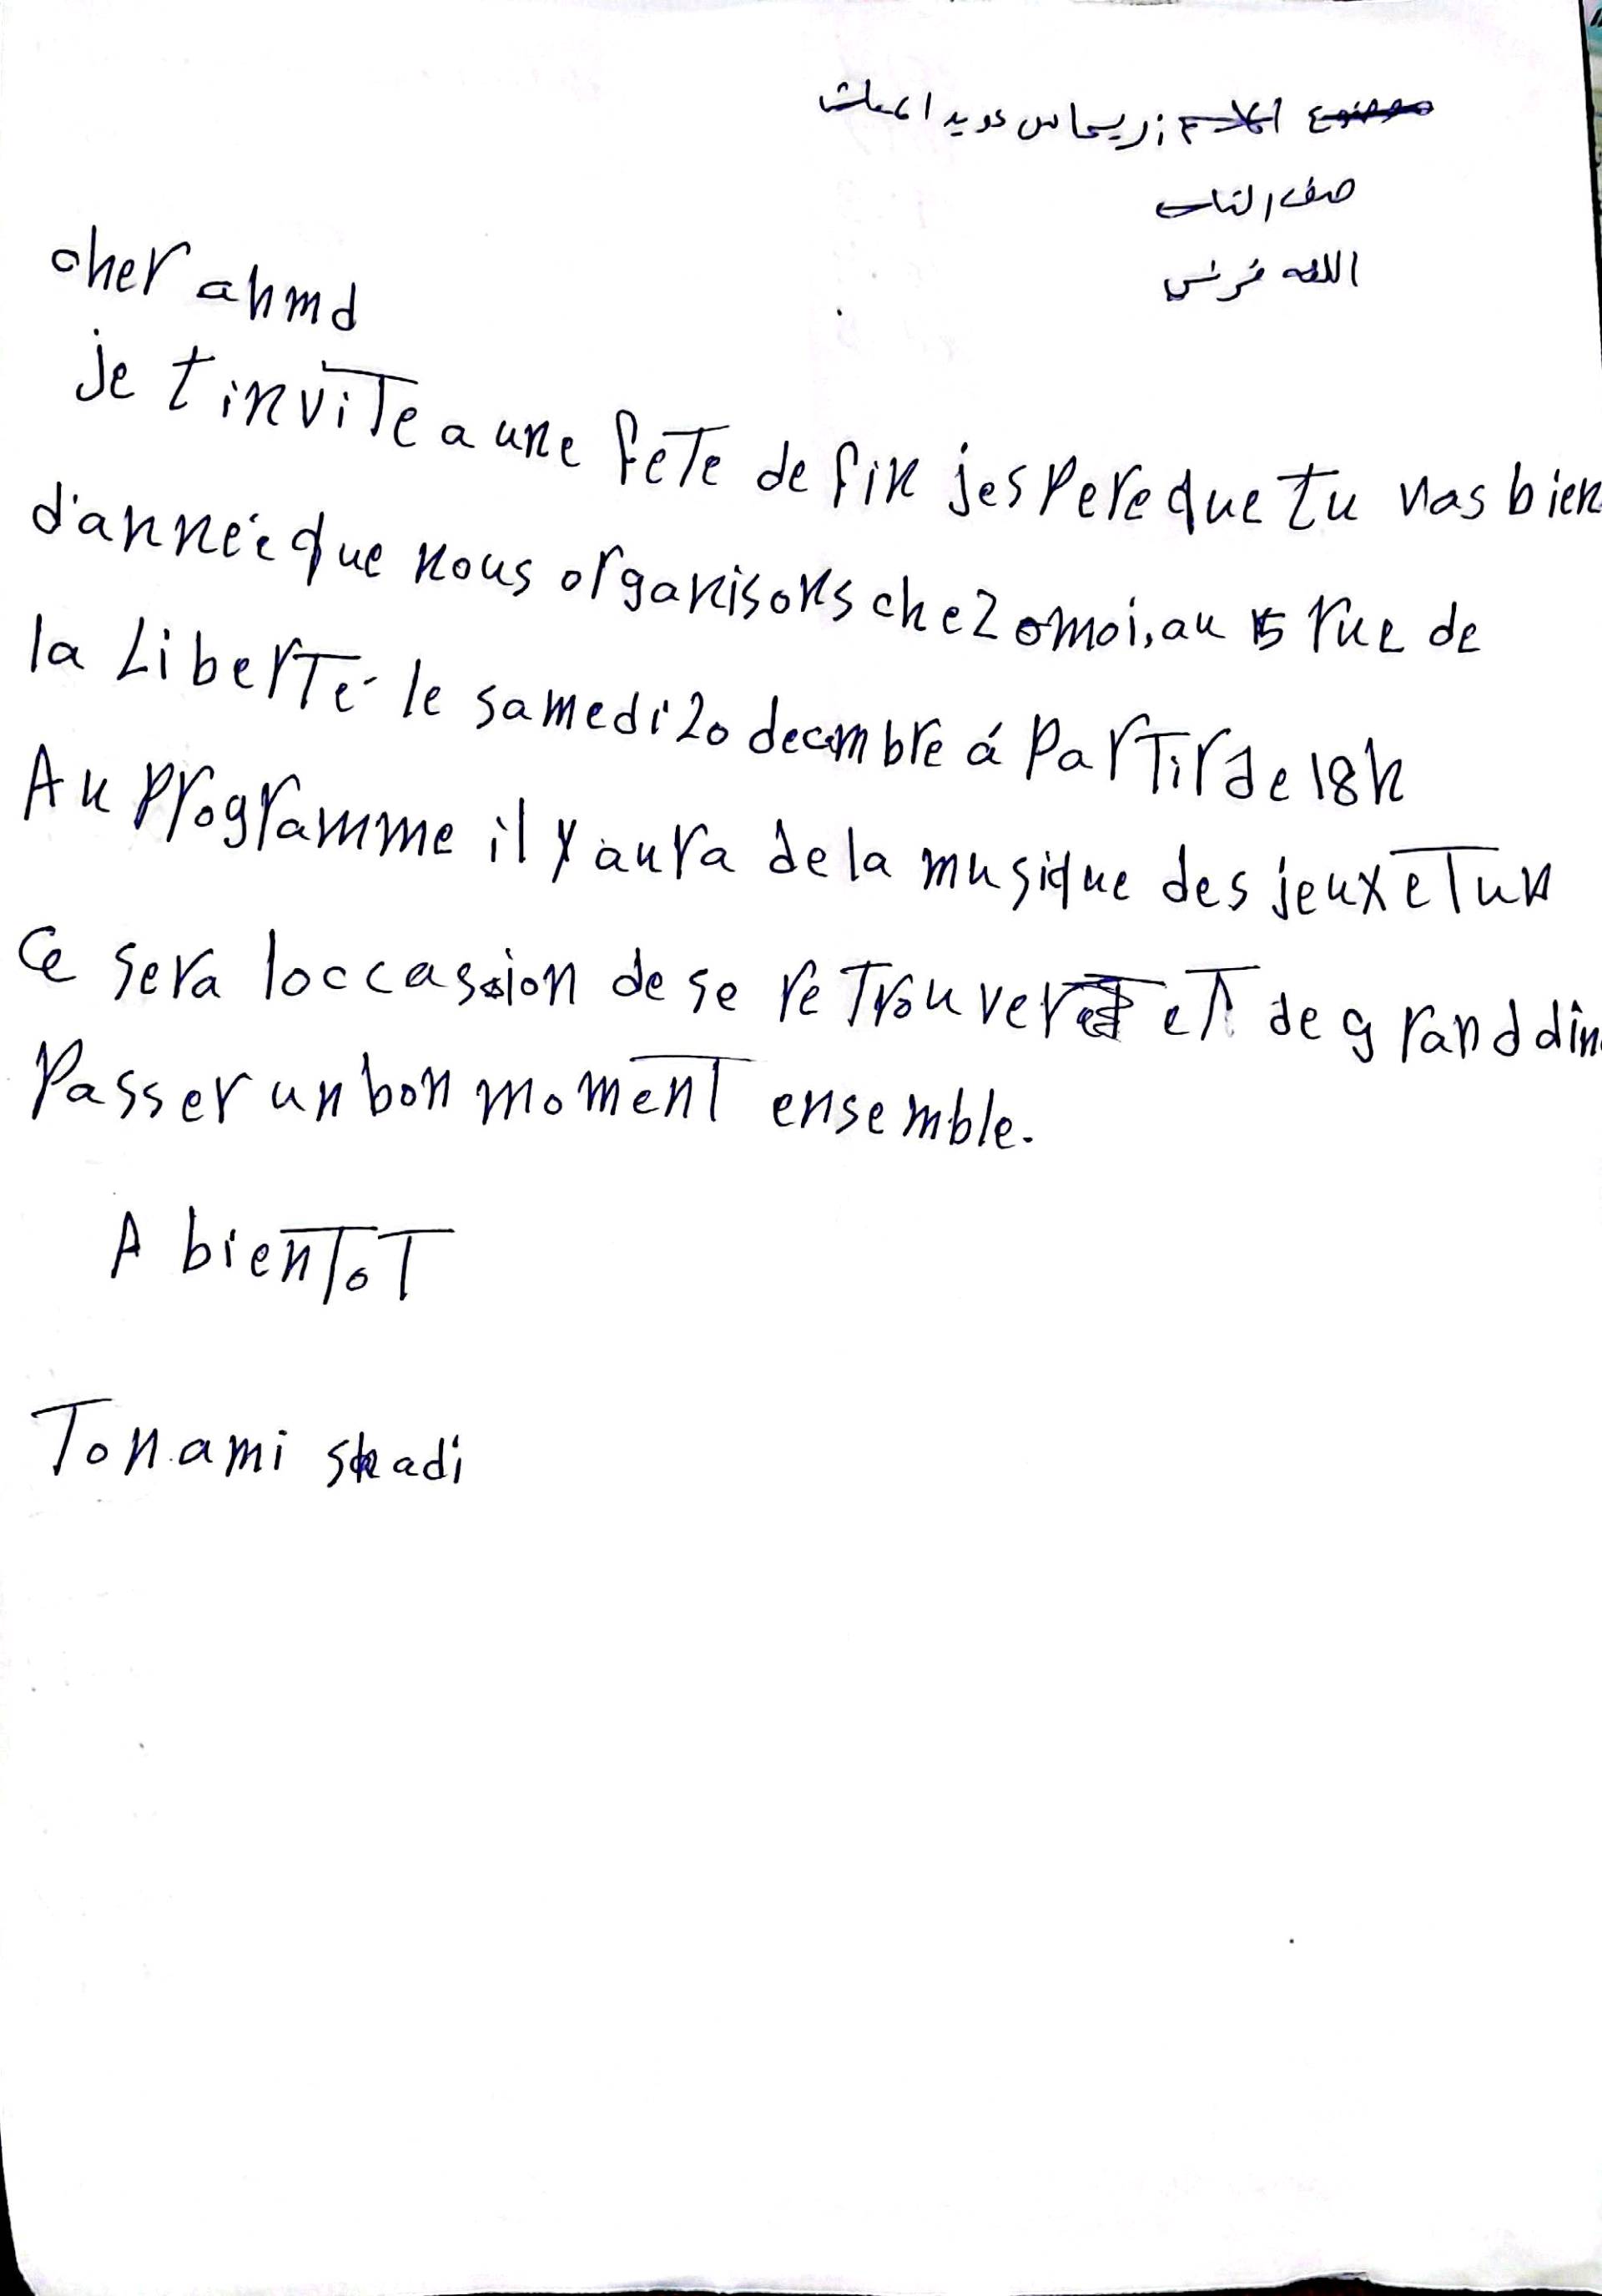 ريماس عويد
صف الثالث
اللغه فرنسي
cher ahmd
je t invite a une fete de fin jespere que tu vas bien
d'année que nous organisons chez moi, au 15 rue de
la Liberté le samedi 20 decembre á partir de 18h
Au programme il y aura de la musique des jeux et un
Ce sera loccassion de se retrouver et de grand din
Passer un bon moment ensemble.
A bientot
Ton ami shadi